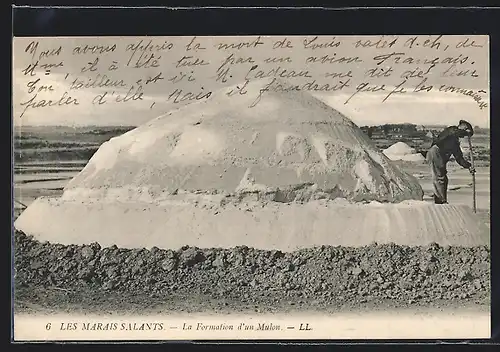 Nous avons appris la mort de Louis valet d.ch, de
Mme il a été tuée par un avion français.
Ton tailleur est ici M. Cadeau me dit de leur
parler d'elle, Mais il faudrait que je les connaisse
6 LES MARAIS SALANTS. — La Formation d'un Mulon. — LL